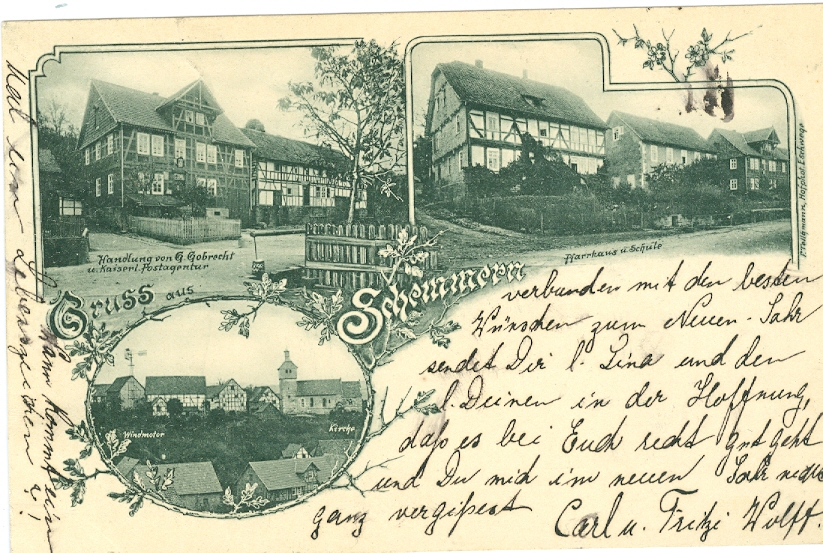 Handlung von G. Gobrecht
u. Kaiserl. Postagentur
Pfarrhaus u. Schule
F. Tellgmann, Hofphot. Eschwege
Gruss aus Schemmern
Windmotor
Kirche
verbunden mit den besten
Wünschen zum Neuen-Jahr
sendet Dir l. Lina und den
l. Deinen in der Hoffnung,
daß es bei Euch recht gut geht
und Du mich im neuen Jahr nicht
ganz vergißest
Carl u. Fritzi Wolff.
Wann kommt ein
mal ein Lebenszeichen?!